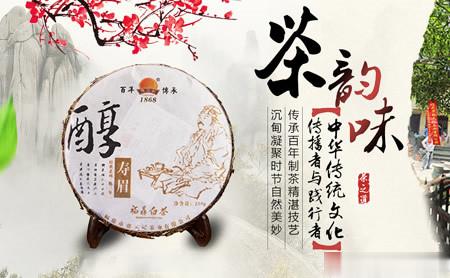 百年传承
1868
醇
寿眉
福鼎白茶
茶韵味
【中华传统文化
传播者与践行者】
传承百年制茶精湛技艺
沉甸凝聚时节自然美妙
茶之道